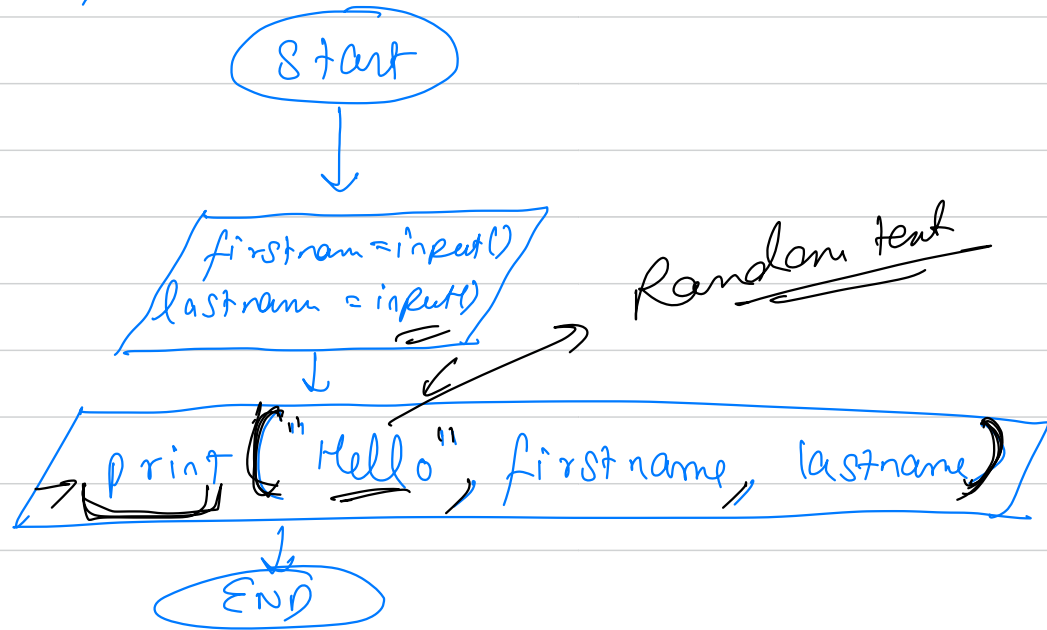 Start
firstnam=input()
lastnam = input()
Random text
print ("Hello", firstname, lastname)
END